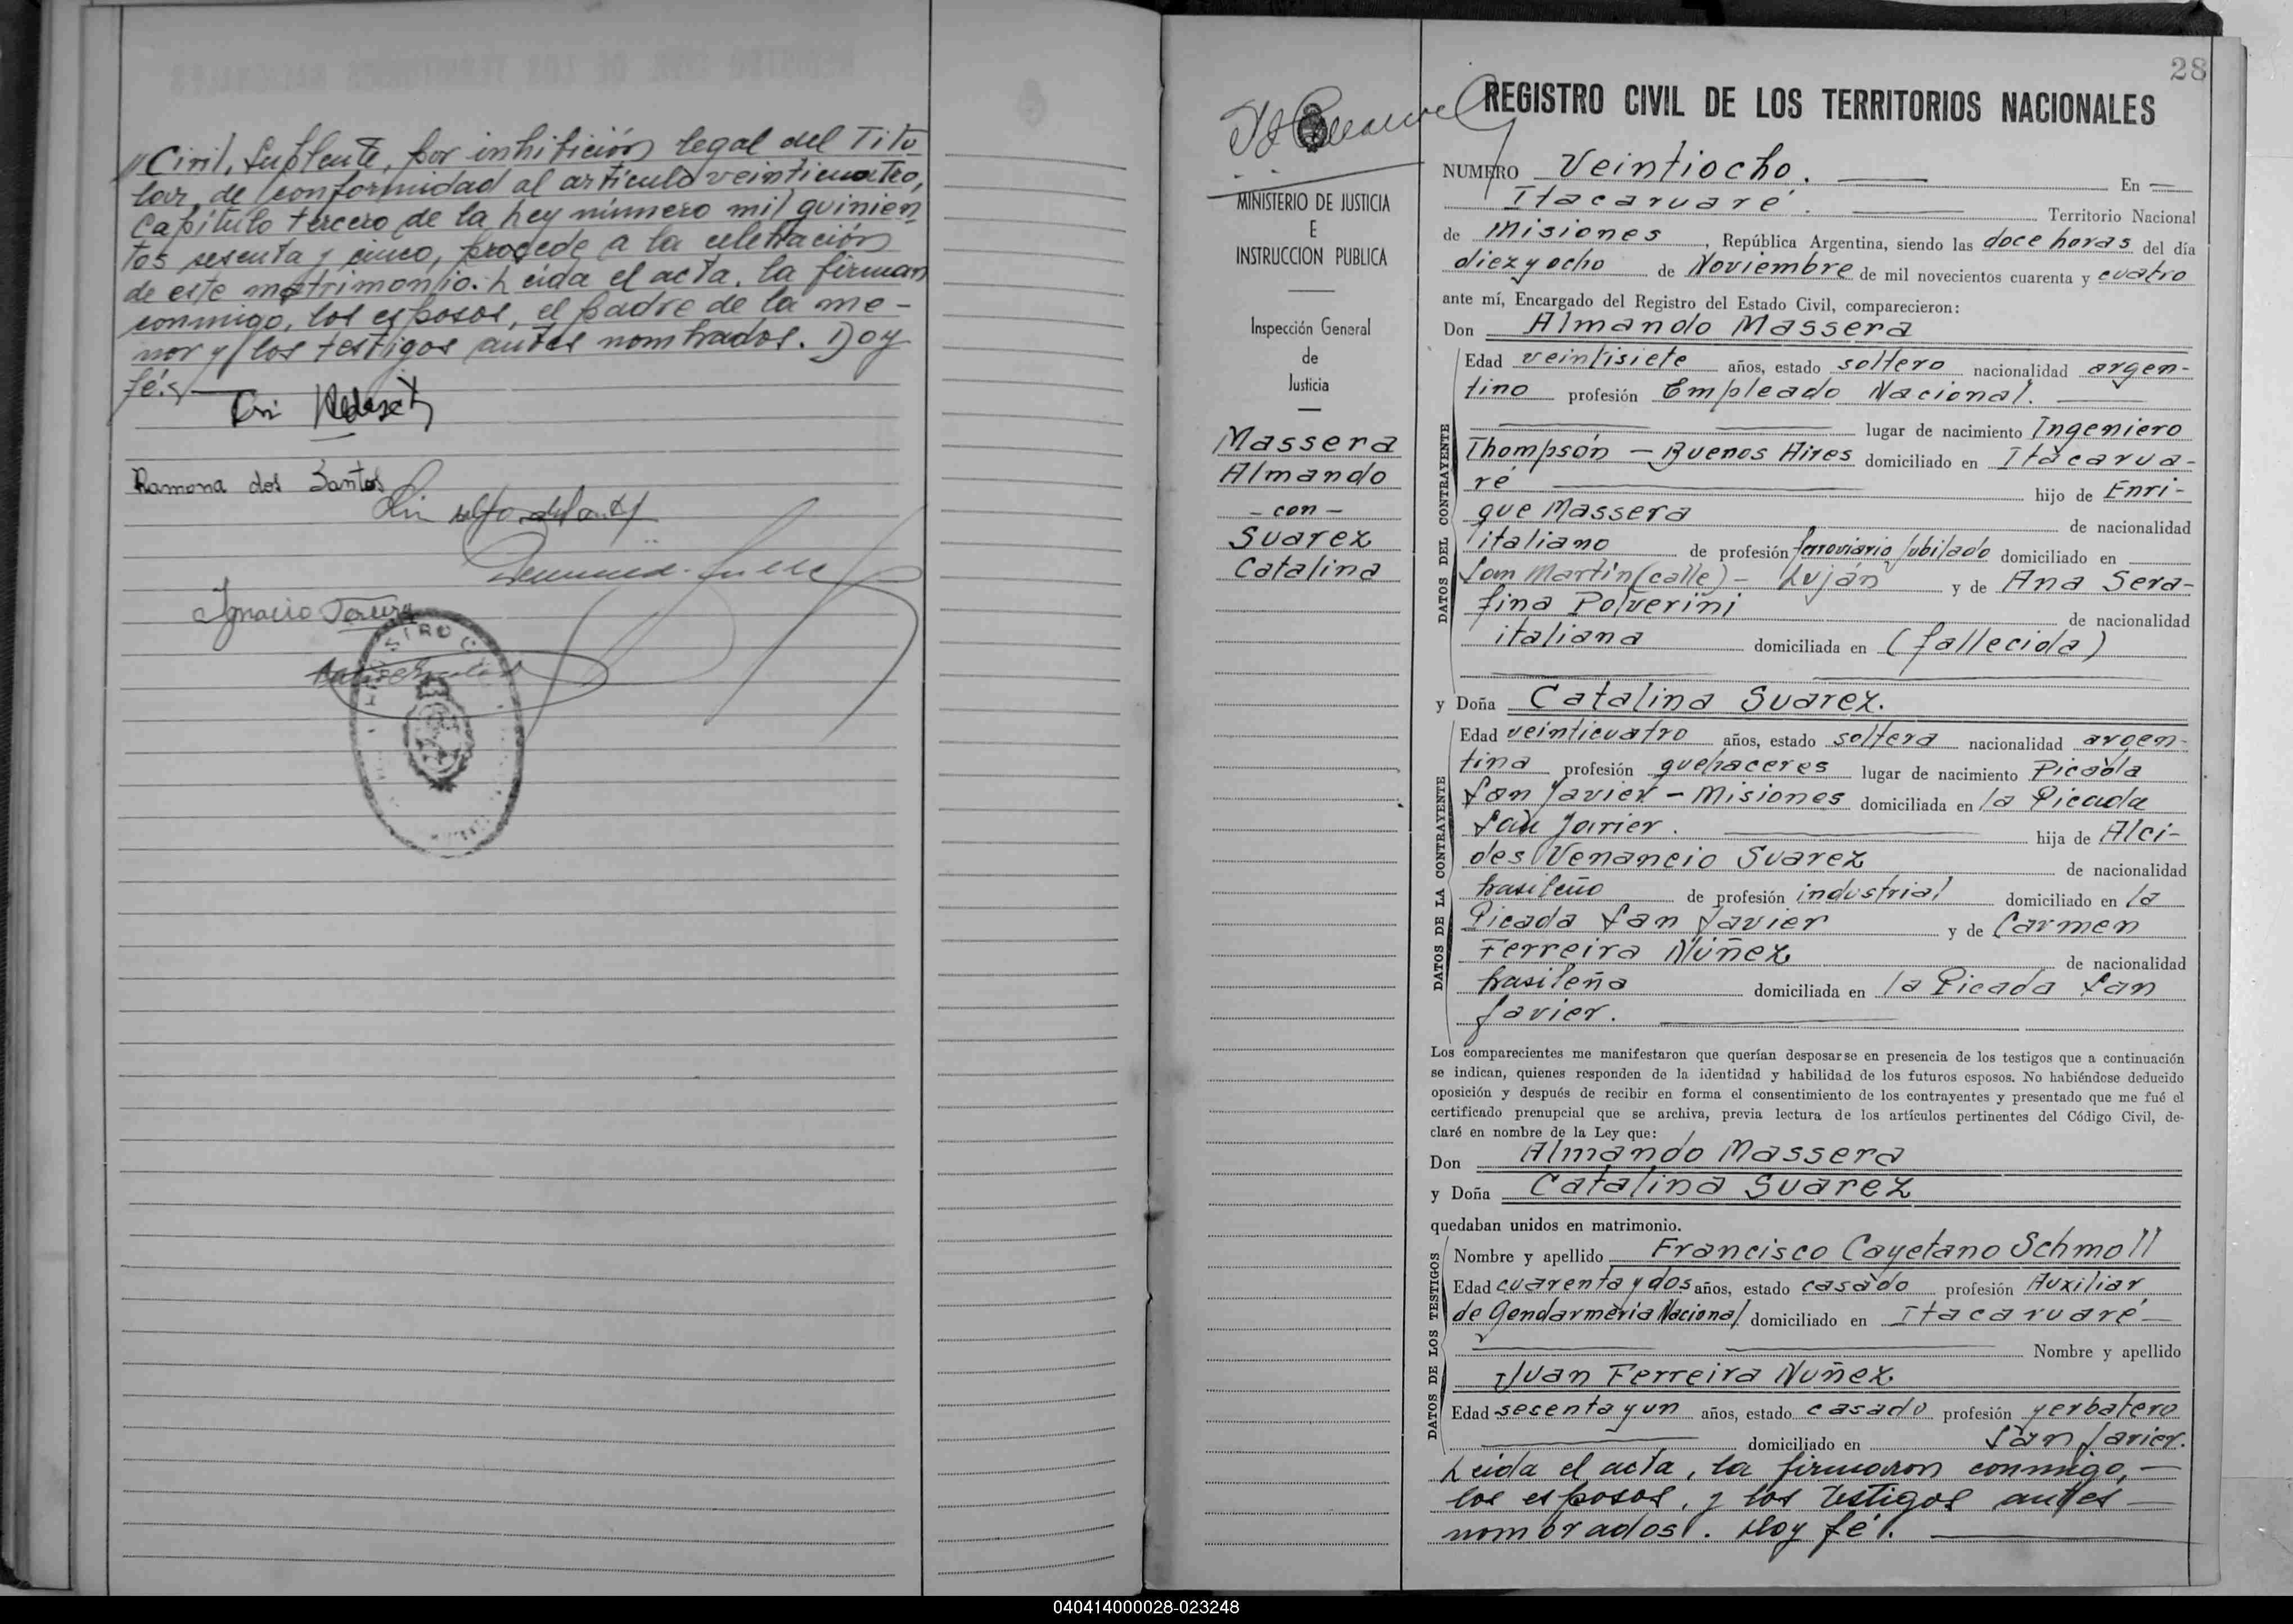 "Civil, Suplente, por inhibición legal del Titu
lar, de conformidad al artículo veinticuatro,
Capítulo tercero de la Ley número mil quinien
tos sesenta y cinco, procede a la celebración
de este matrimonio. Leída el acta, la firman
conmigo, los esposos, el padre de la me-
nor y los testigos antes nombrados. Doy
fé.
Ramona dos Santos
Ignacio
28
REGISTRO CIVIL DE LOS TERRITORIOS NACIONALES
MINISTERIO DE JUSTICIA
E
INSTRUCCION PUBLICA
Inspección General
de
Justicia
Massera
Almando
- con -
Suarez
Catalina
NUMERO Veintiocho. En
Itacaruaré. Territorio Nacional
de Misiones, República Argentina, siendo las doce horas del día
diez y ocho de Noviembre de mil novecientos cuarenta y cuatro
ante mí, Encargado del Registro del Estado Civil, comparecieron:
Don Almando Massera
DATOS DEL CONTRAYENTE
Edad veintisiete años, estado soltero nacionalidad argen-
tino profesión Empleado Nacional.
lugar de nacimiento Ingeniero
Thompsón - Buenos Aires domiciliado en Itacarua-
ré hijo de Enri-
que Massera de nacionalidad
italiano de profesión ferroviario jubilado domiciliado en
San Martín (calle) - Luján y de Ana Sera-
fina Polverini de nacionalidad
italiana domiciliada en (fallecida)
y Doña Catalina Suarez.
DATOS DE LA CONTRAYENTE
Edad veinticuatro años, estado soltera nacionalidad argen-
tina profesión quehaceres lugar de nacimiento Picada
San Javier - Misiones domiciliada en la Picada
San Javier. hija de Alci-
des Venancio Suarez de nacionalidad
brasileño de profesión industrial domiciliado en la
Picada San Javier y de Carmen
Ferreira Núñez de nacionalidad
brasileña domiciliada en la Picada San
Javier.
Los comparecientes me manifestaron que querían desposarse en presencia de los testigos que a continuación
se indican, quienes responden de la identidad y habilidad de los futuros esposos. No habiéndose deducido
oposición y después de recibir en forma el consentimiento de los contrayentes y presentado que me fué el
certificado prenupcial que se archiva, previa lectura de los artículos pertinentes del Código Civil, de-
claré en nombre de la Ley que:
Don Almando Massera
y Doña Catalina Suarez
quedaban unidos en matrimonio.
DATOS DE LOS TESTIGOS
Nombre y apellido Francisco Cayetano Schmoll
Edad cuarenta y dos años, estado casado profesión Auxiliar
de Gendarmería Nacional domiciliado en Itacaruaré
Nombre y apellido
Juan Ferreira Nuñez
Edad sesenta y un años, estado casado profesión yerbatero
domiciliado en San Javier.
Leída el acta, la firmaron conmigo,
los esposos, y los testigos antes
nombrados. Doy fé.
040414000028-023248